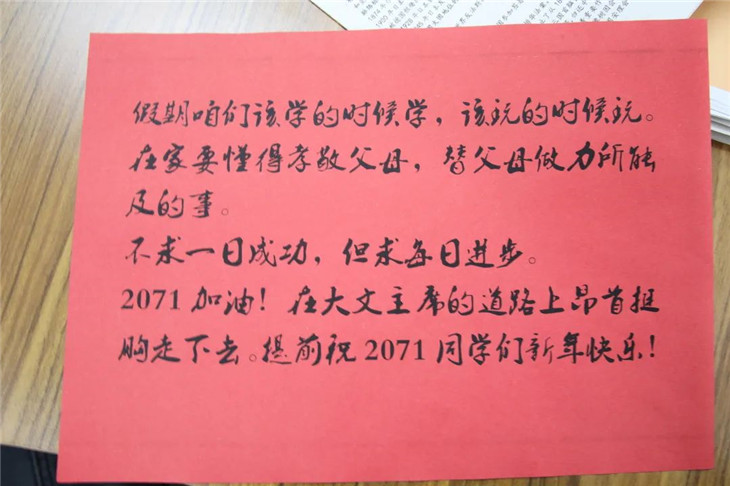 假期咱们该学的时候学，该玩的时候玩。
在家要懂得孝敬父母，替父母做力所能
及的事。
不求一日成功，但求每日进步。
2071 加油！在大文主席的道路上昂首挺
胸走下去。提前祝 2071 同学们新年快乐！